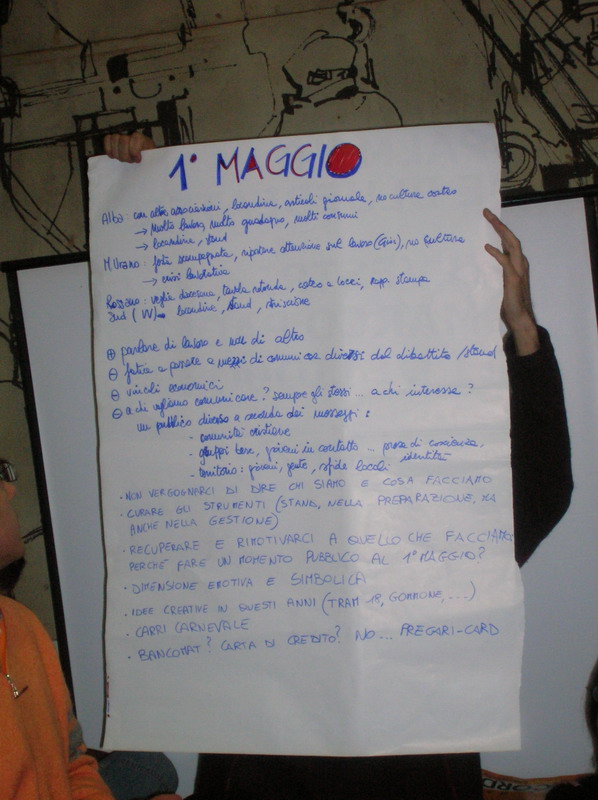 1° MAGGIO
Alba: con altre associazioni, locandine, articoli giornale, no cultura corteo
→ molto lavoro, molto guadagno, molti consumi
→ locandine, stand
Murano: festa scampagnata, riportare attenzione sul lavoro (Gioc), no cultura
→ crisi lavorativa
Rossano: veglia diocesana, tavola rotonda, corteo a Lecci, rappa stampa
locandine, stand, iscrizione
⊕ parlare di lavoro e non di altro
⊖ fatica a pensare a mezzi di comunicaz diversi dal dibattito / stand
⊖ vincoli economici
⊖ a chi vogliamo comunicare? sempre gli stessi ... a chi interessa?
un pubblico diverso a seconda dei messaggi:
- comunità cristiane
- gruppi base, giovani in contatto ... presa di coscienza, identità
- territorio: giovani, gente, sfide locali
• NON VERGOGNARCI DI DIRE CHI SIAMO E COSA FACCIAMO
• CURARE GLI STRUMENTI (STAND, NELLA PREPARAZIONE, MA
ANCHE NELLA GESTIONE)
• RECUPERARE E RIMOTIVARCI A QUELLO CHE FACCIAMO
PERCHÉ FARE UN MOMENTO PUBBLICO AL 1° MAGGIO?
• DIMENSIONE EMOTIVA E SIMBOLICA
• IDEE CREATIVE IN QUESTI ANNI (TRAM 18, GOMMONE, ....)
• CARRI CARNEVALE
• BANCOMAT? CARTA DI CREDITO? NO... PREGARI-CARD